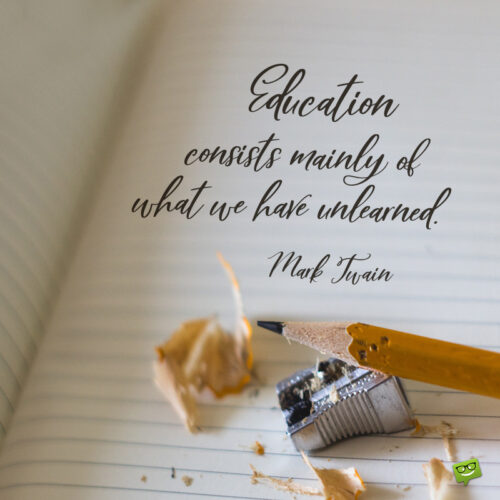 Education
consists mainly of
what we have unlearned.
Mark Twain